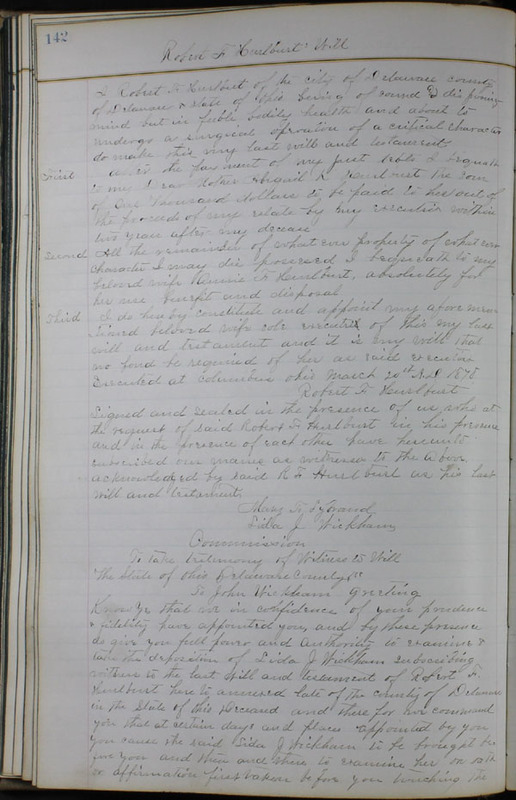 142
Robert F Hurlburt Will
I Robert F Hurlburt of the city of Delaware county
of Delaware & state of Ohio being of sound & disposing
mind but in feble bodily health and about to
undergo a surgical opration of a critical character
do make this my last will and testament
First after the payment of my just debts I bequeath
to my Dear Mother Abigail Hurlburt the sum
of One Thousand dollars to be paid to her out of
the proceeds of my estate by my executrix within
two years after my decease
Second All the remainder of what ever property of what ever
character I may die possessed I bequeath to my
beloved wife Hurlburt, absolutely for
her use benefit and disposal
Third I do hereby constitute and appoint my afore men
tioned beloved wife sole executrix of this my last
will and testament and it is my will that
no bond be required of her as said executrix
Executed at Columbus Ohio March 20th A.D. 1878
Robert F Hurlburt
Signed and sealed in the presence of us who at
the request of said Robert F Hurlburt in his presence
and in the presence of each other have hereunto
subscribed our names as witnesses to the above
acknowledged by said R F Hurlburt as his last
will and testament
Mary
Lida J Wickham
Commission
To take testimony of Witness to Will
The State of Ohio Delaware County ss
To John Wickham greeting
Know Ye that we in confidence of your prudence
& fidelity have appointed you, and by these presence
do give you full power and authority to examine &
take the deposition of Lida J Wickham subscribing
witness to the last will and testament of Robert F.
Hurlburt here to annexed late of the county of Delaware
in the State of Ohio deceased and there for we command
you that at certain days and places appointed by you
you cause the said Lida J Wickham to be brought be
fore you and then and there to examine her on oath
or affirmation first taken before you touching the